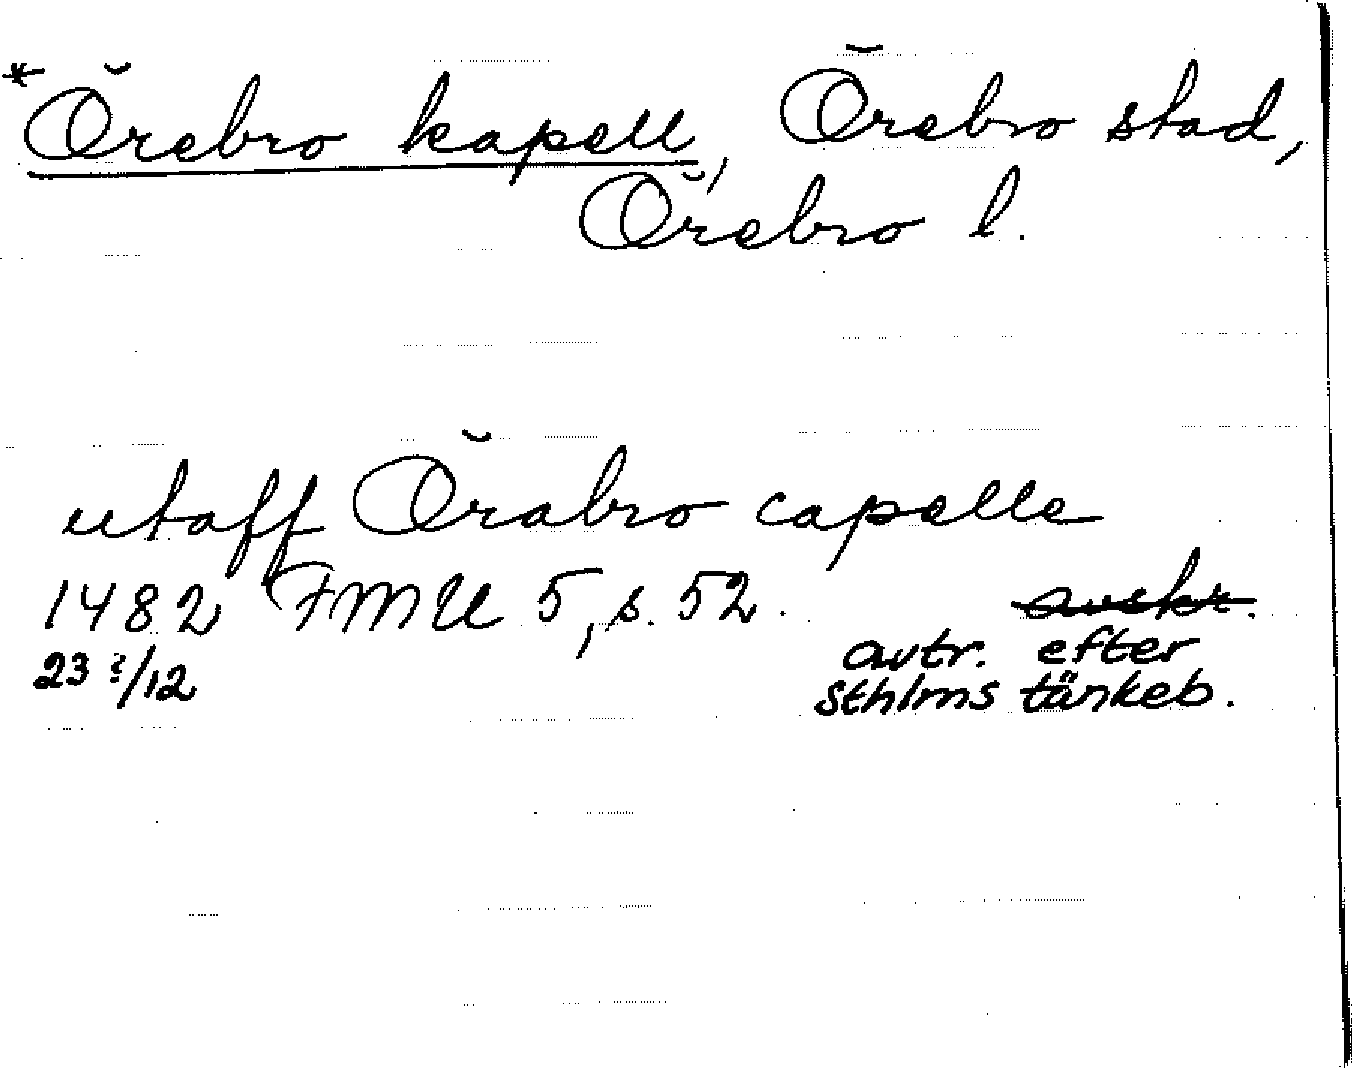 *Örebro kapell, Örebro stad,
Örebro l.
utaff Örabro capelle
1482 FMU 5, s. 52. avskr.
23 ?/12 avtr. efter
Sthlms tänkeb.